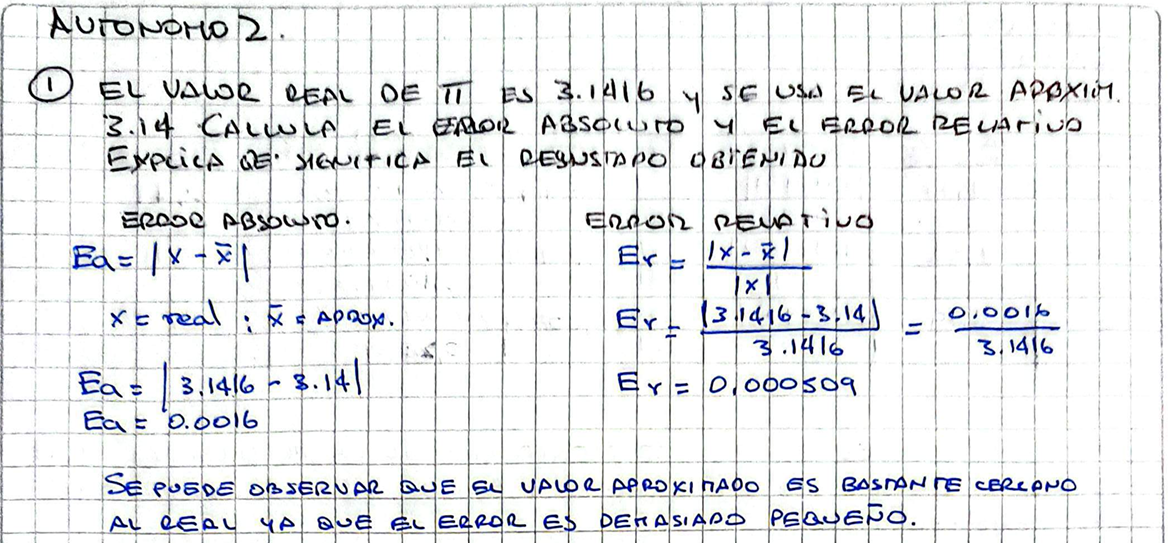 AUTONOMO 2.
① EL VALOR REAL DE π ES 3.1416 y SE USA EL VALOR APROXIM.
3.14 CALCULA EL ERROR ABSOLUTO Y EL ERROR RELATIVO
EXPLICA QE' SIGNIFICA EL RESUSTADO OBTENIDO
ERROR ABSOLUTO.
Ea = |x - x̄|
x = real ; x̄ = APROX.
Ea = |3.1416 - 3.14|
Ea = 0.0016
ERROR RELATIVO
Er = |x - x̄| / |x|
Er = |3.1416 - 3.14| / 3.1416 = 0.0016 / 3.1416
Er = 0,000509
SE PUEDE OBSERVAR QUE EL VALOR APROXIMADO ES BASTANTE CERCANO
AL REAL YA QUE EL ERROR ES DEMASIADO PEQUEÑO.